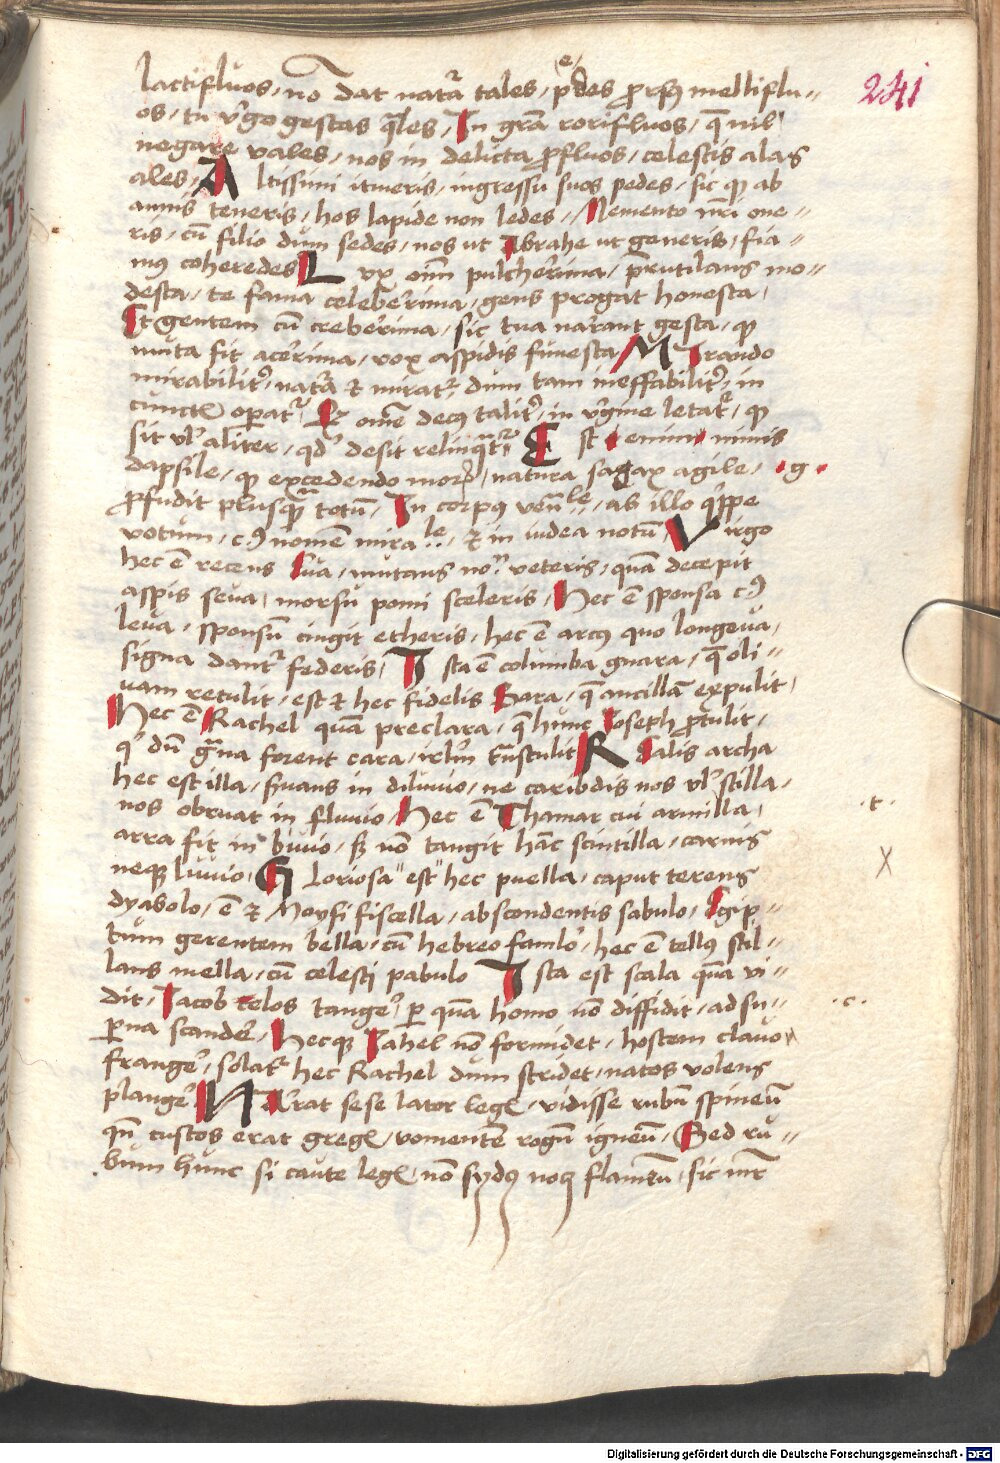 241
lactifluos, nō dat natᷓa tales, pedes ꝓrsꝰ melliflu-
os, tu vᷓgo gestas qᷓles, In grᷓa rorifluos, q̄ nil
negare vales, nos in delicta ꝓfluos, celestis alas
ales, Altissimi itineris, ingressu suos pedes, sic qꝫ ab
annis teneris, hos lapide non ledes, Memento nr̄i one-
ris, cū filio dum sedes, nos ut Abrahe ut generis, fia-
mꝰ coheredes Lux om̄ pulcherrima, p̄rutilans mo-
desta, te fama celeberrima, gens progat honesta,
Et gentem cū creberrima, sic tua narrant gesta, qꝫ
muta fit acerrima, vox aspidis funesta, Mirando
mirabilit᷑, natᷓa et mirat᷑, dum tam ineffabilit᷑, in
cunctis operat᷑ Et om̄e decꝰ talit᷑, in vᷓgine letat᷑, qꝫ
sit vl᷑ aliter, qd᷑ desit relinqᷓt᷑ Est enim nimis
dapsile, qꝫ excedendo mor, natura sagax agile, .g.
ꝓfudit plusqᷓ totū, In corpꝰ ven᷑le, ab illo qᷓppe
votum, cꝰ nomen mira le, et in iudea notū, Virgo
hec ē recens Eua, mutans no᷑ veteris, quā decepit
aspis seua, morsu pomi sceleris, Hec ē sponsa cꝰ
leua, sponsū cingit etheris, hec ē arcꝰ quo longeua,
signa dant᷑ federis, Ista ē columba gnara, q̄ oli-
uam retulit, est et hec fidelis Sara, q̄ ancillā expulit,
Hec ē Rachel quā preclara, q̄ hunc Ioseph ꝓtulit,
q᷑ dū gᷓna forent cara, irl᷑m tᷓnstulit Regalis archa
hec est illa, s᷑uans in diluuio, ne caribdis nos vl᷑ stilla,
nos obruat in fluuio, Hec ē Thamar cui armilla, .t.
arra fit in biuio, sꝫ nō tangit hāc scintilla, carnis
neqꝫ luuio, Gloriosa est hec puella, caput terens
dyabolo, ē et Moysi fiscella, abscondentis sabulo, Egip-
tum gerentem bella, cū hebreo famlo, hec ē tellꝰ stil-
lans mella, cū celesti pabulo Ista est scala quā vi-
dit, Iacob celos tanger᷑, ꝑ quā homo nō diffidit, ad su- .c.
ꝑna scander᷑, Hecqꝫ Iahel nō formidet, hostem clauo
franger᷑, solat᷑ hec Rachel dum stridet, natos volens
planger᷑ Narrat sese lator legꝭ, vidisse rubū spineū
qn̄ custos erat gregꝭ, vomentē rogū igneū, Sed ru-
bum hunc si caute legꝭ, nō sydꝰ nocꝫ flameū, sic mr̄
Digitalisierung gefördert durch die Deutsche Forschungsgemeinschaft - DFG